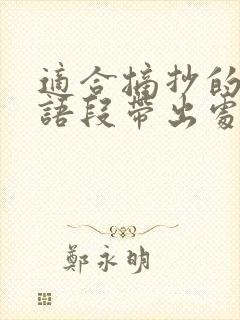 適合摘抄的
語段帶出處
鄭永明